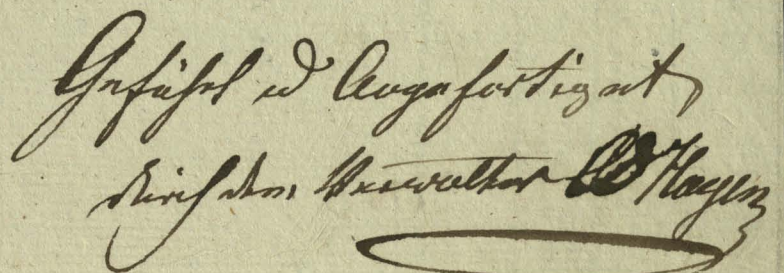 Geführt u Angefertiget
durch den Verwalter Hagen